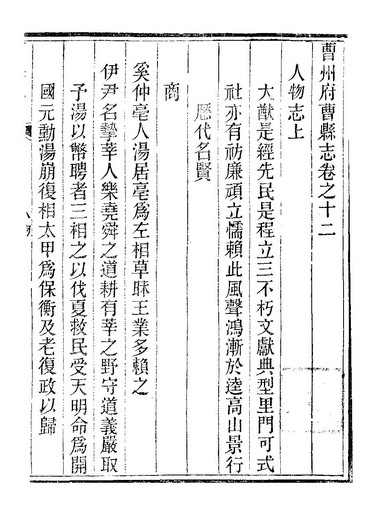 曹州府曹縣志卷之十二
人物志上
大猷是經先民是程立三不朽文獻典型里門可式
社亦有祊廉頑立懦賴此風聲鴻漸於逵高山景行
歷代名賢
商
奚仲亳人湯居亳為左相草昧王業多賴之
伊尹名摯莘人樂堯舜之道耕有莘之野守道義嚴取
予湯以幣聘者三相之以伐夏救民受天明命為開
國元勳湯崩復相太甲為保衡及老復政以歸